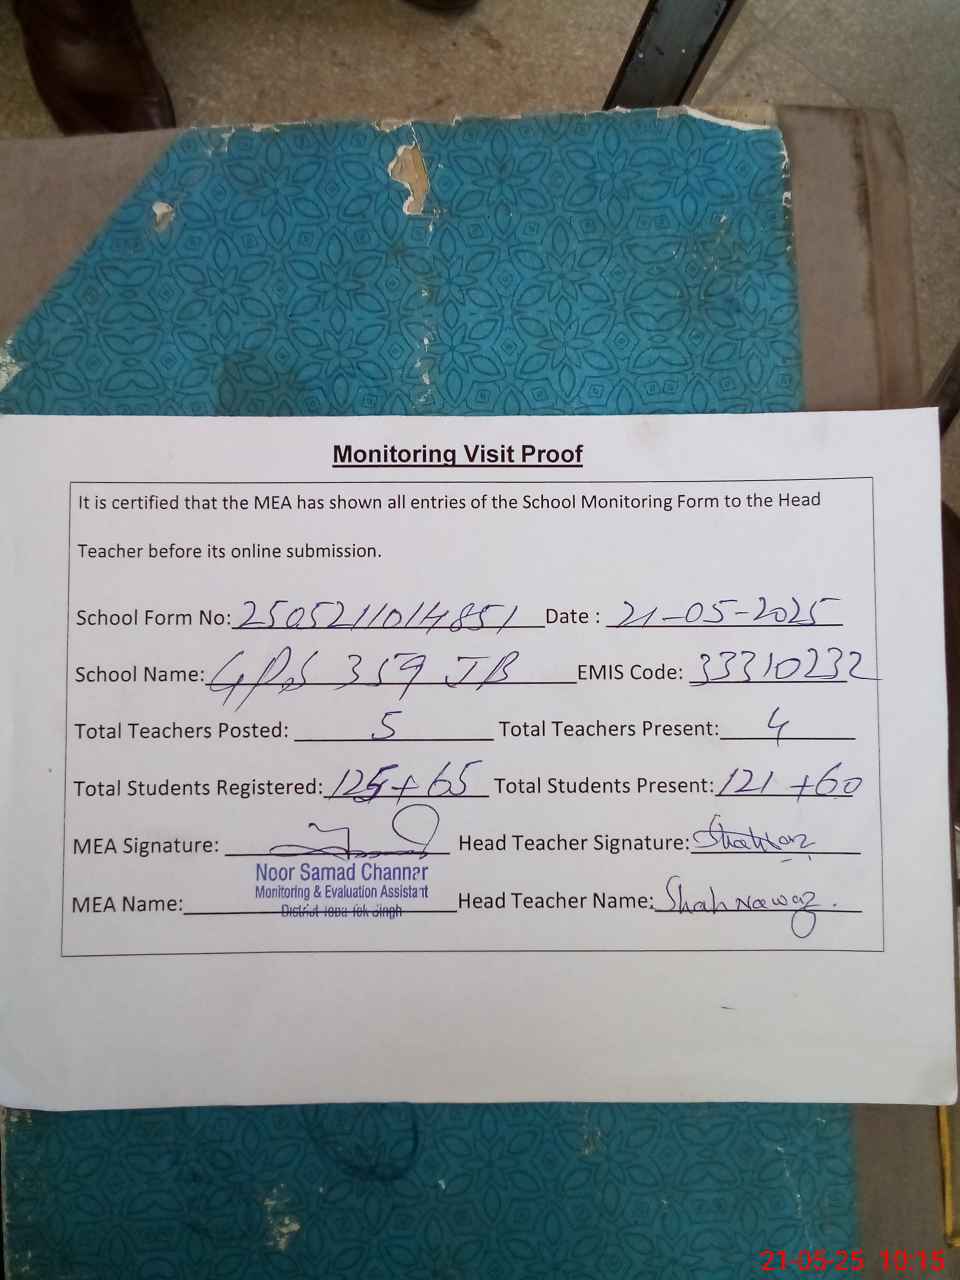 Monitoring Visit Proof
It is certified that the MEA has shown all entries of the School Monitoring Form to the Head
Teacher before its online submission.
School Form No: 2505211014851 Date : 21-05-2025
School Name: GPS 359 JB EMIS Code: 33310232
Total Teachers Posted: 5 Total Teachers Present: 4
Total Students Registered: 125+65 Total Students Present: 121 +60
MEA Signature: Head Teacher Signature: Shahnaz
Noor Samad Channar
Monitoring & Evaluation Assistant
District Toba Tek Singh
MEA Name: Head Teacher Name: Shah Nawaz.
21-05-25 10:15